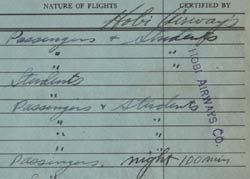 NATURE OF FLIGHTS CERTIFIED BY
Hobi Airways
Passengers & Students
" "
" "
Students
Passengers & Students
" "
" "
Passengers. night 100 min
"
HOBI AIRWAYS CO.